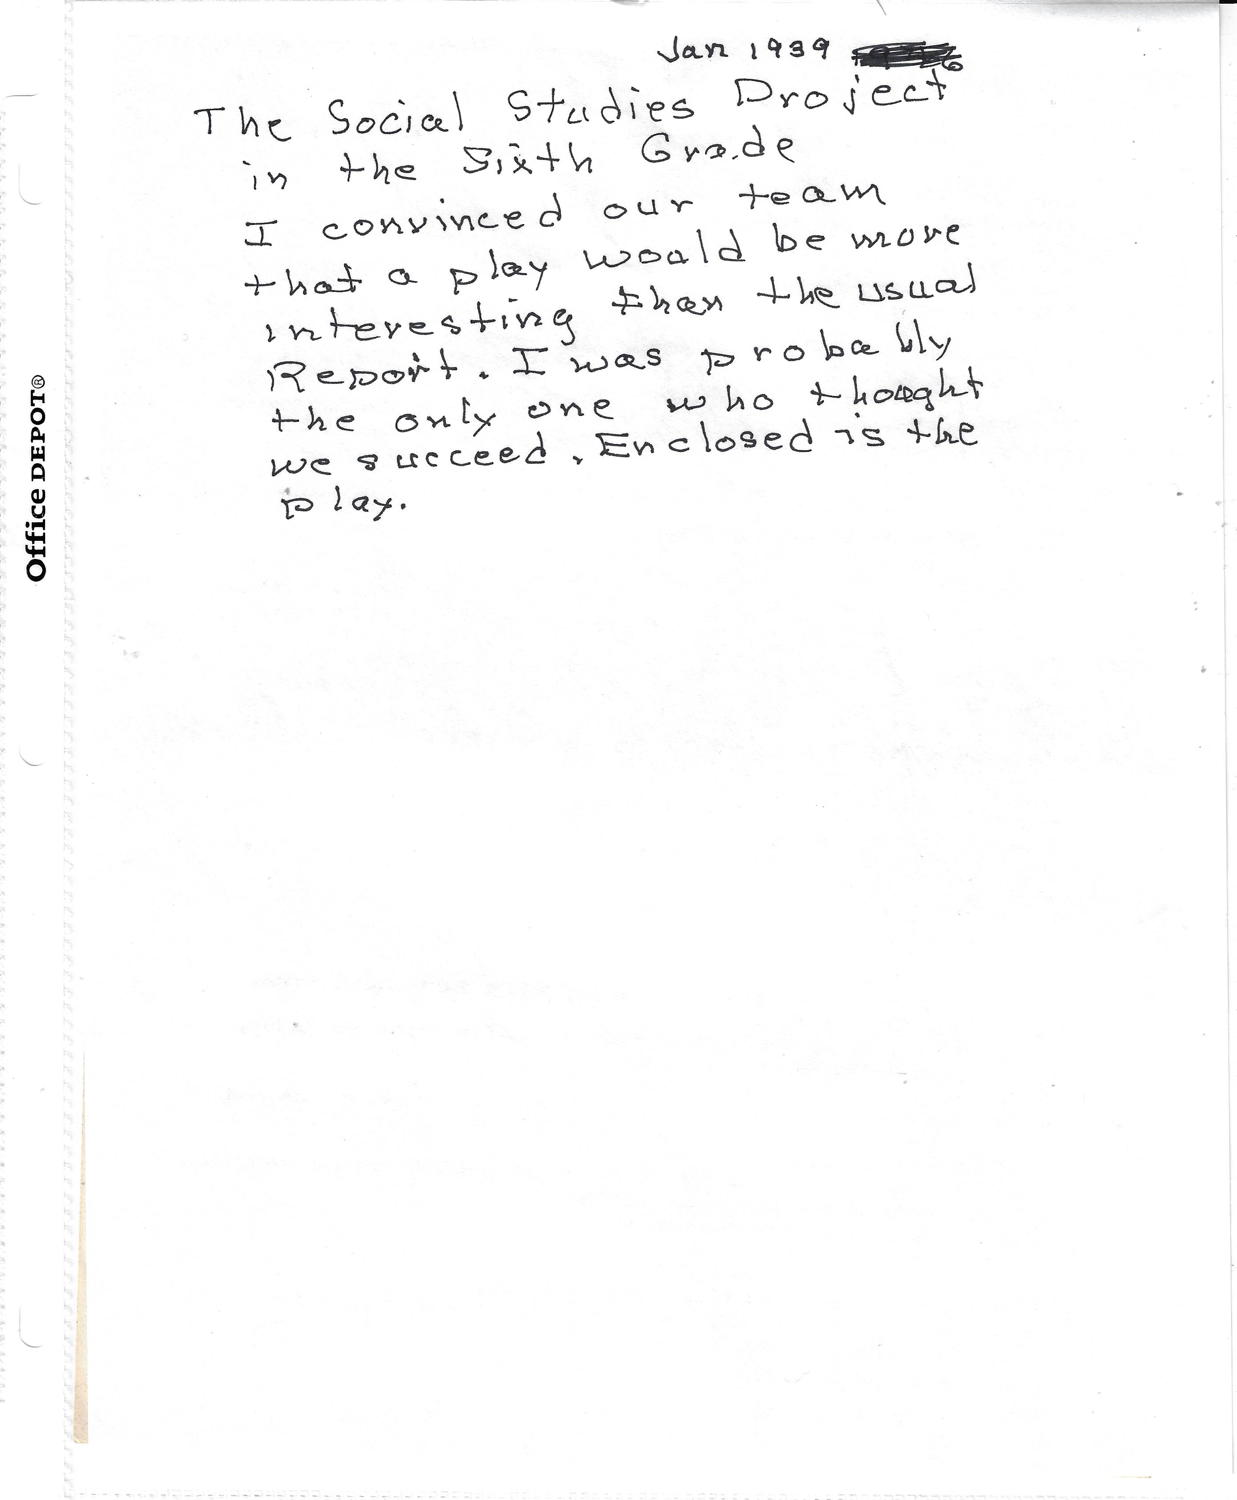 Jan 1939
The Social Studies Project
in the Sixth Grade
I convinced our team
that a play would be more
interesting than the usual
Report. I was probably
the only one who thought
we succeed. Enclosed is the
play.
Office DEPOT®